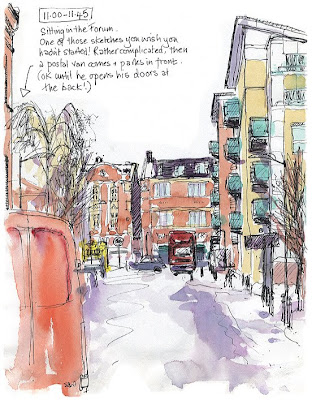 11:00-11:45
Sitting in the Forum.
One of those sketches you wish you
hadn't started! Rather complicated, then
a postal van comes & parks in front.
(OK until he opens his doors at
the back!)